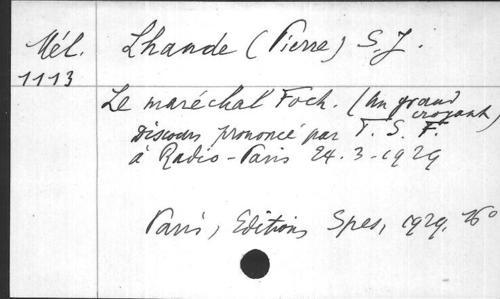 Mél. Lhande (Pierre) S.J.
1113
Le maréchal Foch. (Un grand
croyant)
Discours prononcé par T. S. F.
à Radio-Paris 24.3-1929
Paris, Editions Spes, 1929, 16°